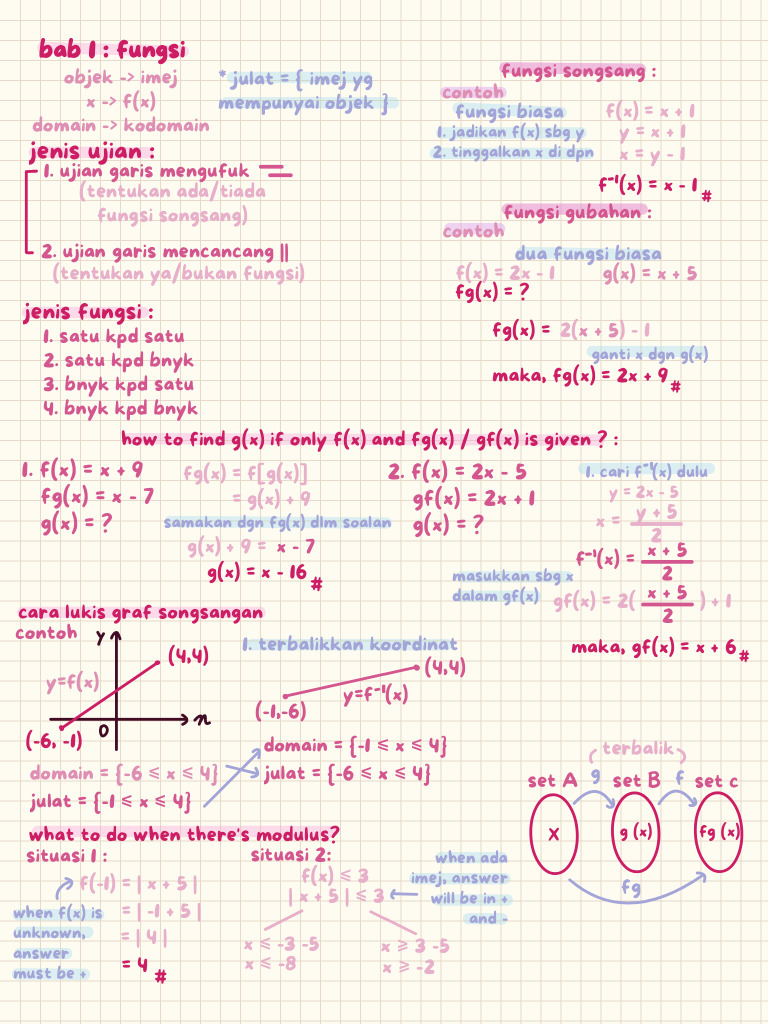 bab 1 : fungsi
objek -> imej
x -> f(x)
domain -> kodomain
* julat = { imej yg
mempunyai objek }
jenis ujian :
1. ujian garis mengufuk
(tentukan ada/tiada
fungsi songsang)
2. ujian garis mencancang ||
(tentukan ya/bukan fungsi)
jenis fungsi :
1. satu kpd satu
2. satu kpd bnyk
3. bnyk kpd satu
4. bnyk kpd bnyk
fungsi songsang :
contoh
fungsi biasa f(x) = x + 1
1. jadikan f(x) sbg y y = x + 1
2. tinggalkan x di dpn x = y - 1
f⁻¹(x) = x - 1 #
fungsi gubahan :
contoh
dua fungsi biasa
f(x) = 2x - 1 g(x) = x + 5
fg(x) = ?
fg(x) = 2(x + 5) - 1
ganti x dgn g(x)
maka, fg(x) = 2x + 9 #
how to find g(x) if only f(x) and fg(x) / gf(x) is given ? :
1. f(x) = x + 9
fg(x) = x - 7
g(x) = ?
fg(x) = f[g(x)]
= g(x) + 9
samakan dgn fg(x) dlm soalan
g(x) + 9 = x - 7
g(x) = x - 16 #
2. f(x) = 2x - 5
gf(x) = 2x + 1
g(x) = ?
1. cari f⁻¹(x) dulu
y = 2x - 5
x = y + 5
2
f⁻¹(x) = x + 5
2
masukkan sbg x
dalam gf(x)
gf(x) = 2( x + 5 ) + 1
2
maka, gf(x) = x + 6 #
cara lukis graf songsangan
contoh
y
(4,4)
y=f(x)
x
0
(-6, -1)
domain = {-6 ⩽ x ⩽ 4}
julat = {-1 ⩽ x ⩽ 4}
1. terbalikkan koordinat
(4,4)
y=f⁻¹(x)
(-1,-6)
domain = {-1 ⩽ x ⩽ 4}
julat = {-6 ⩽ x ⩽ 4}
terbalik
set A g set B f set c
x g (x) fg (x)
fg
what to do when there's modulus?
situasi 1 :
f(-1) = | x + 5 |
= | -1 + 5 |
= | 4 |
= 4 #
when f(x) is
unknown,
answer
must be +
situasi 2:
f(x) ⩽ 3
| x + 5 | ⩽ 3
x ⩽ -3 -5
x ⩽ -8
x ⩾ 3 -5
x ⩾ -2
when ada
imej, answer
will be in +
and -